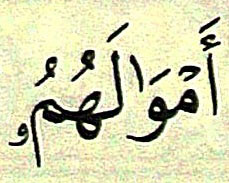 أَمۡوَٰلَهُمُۥ